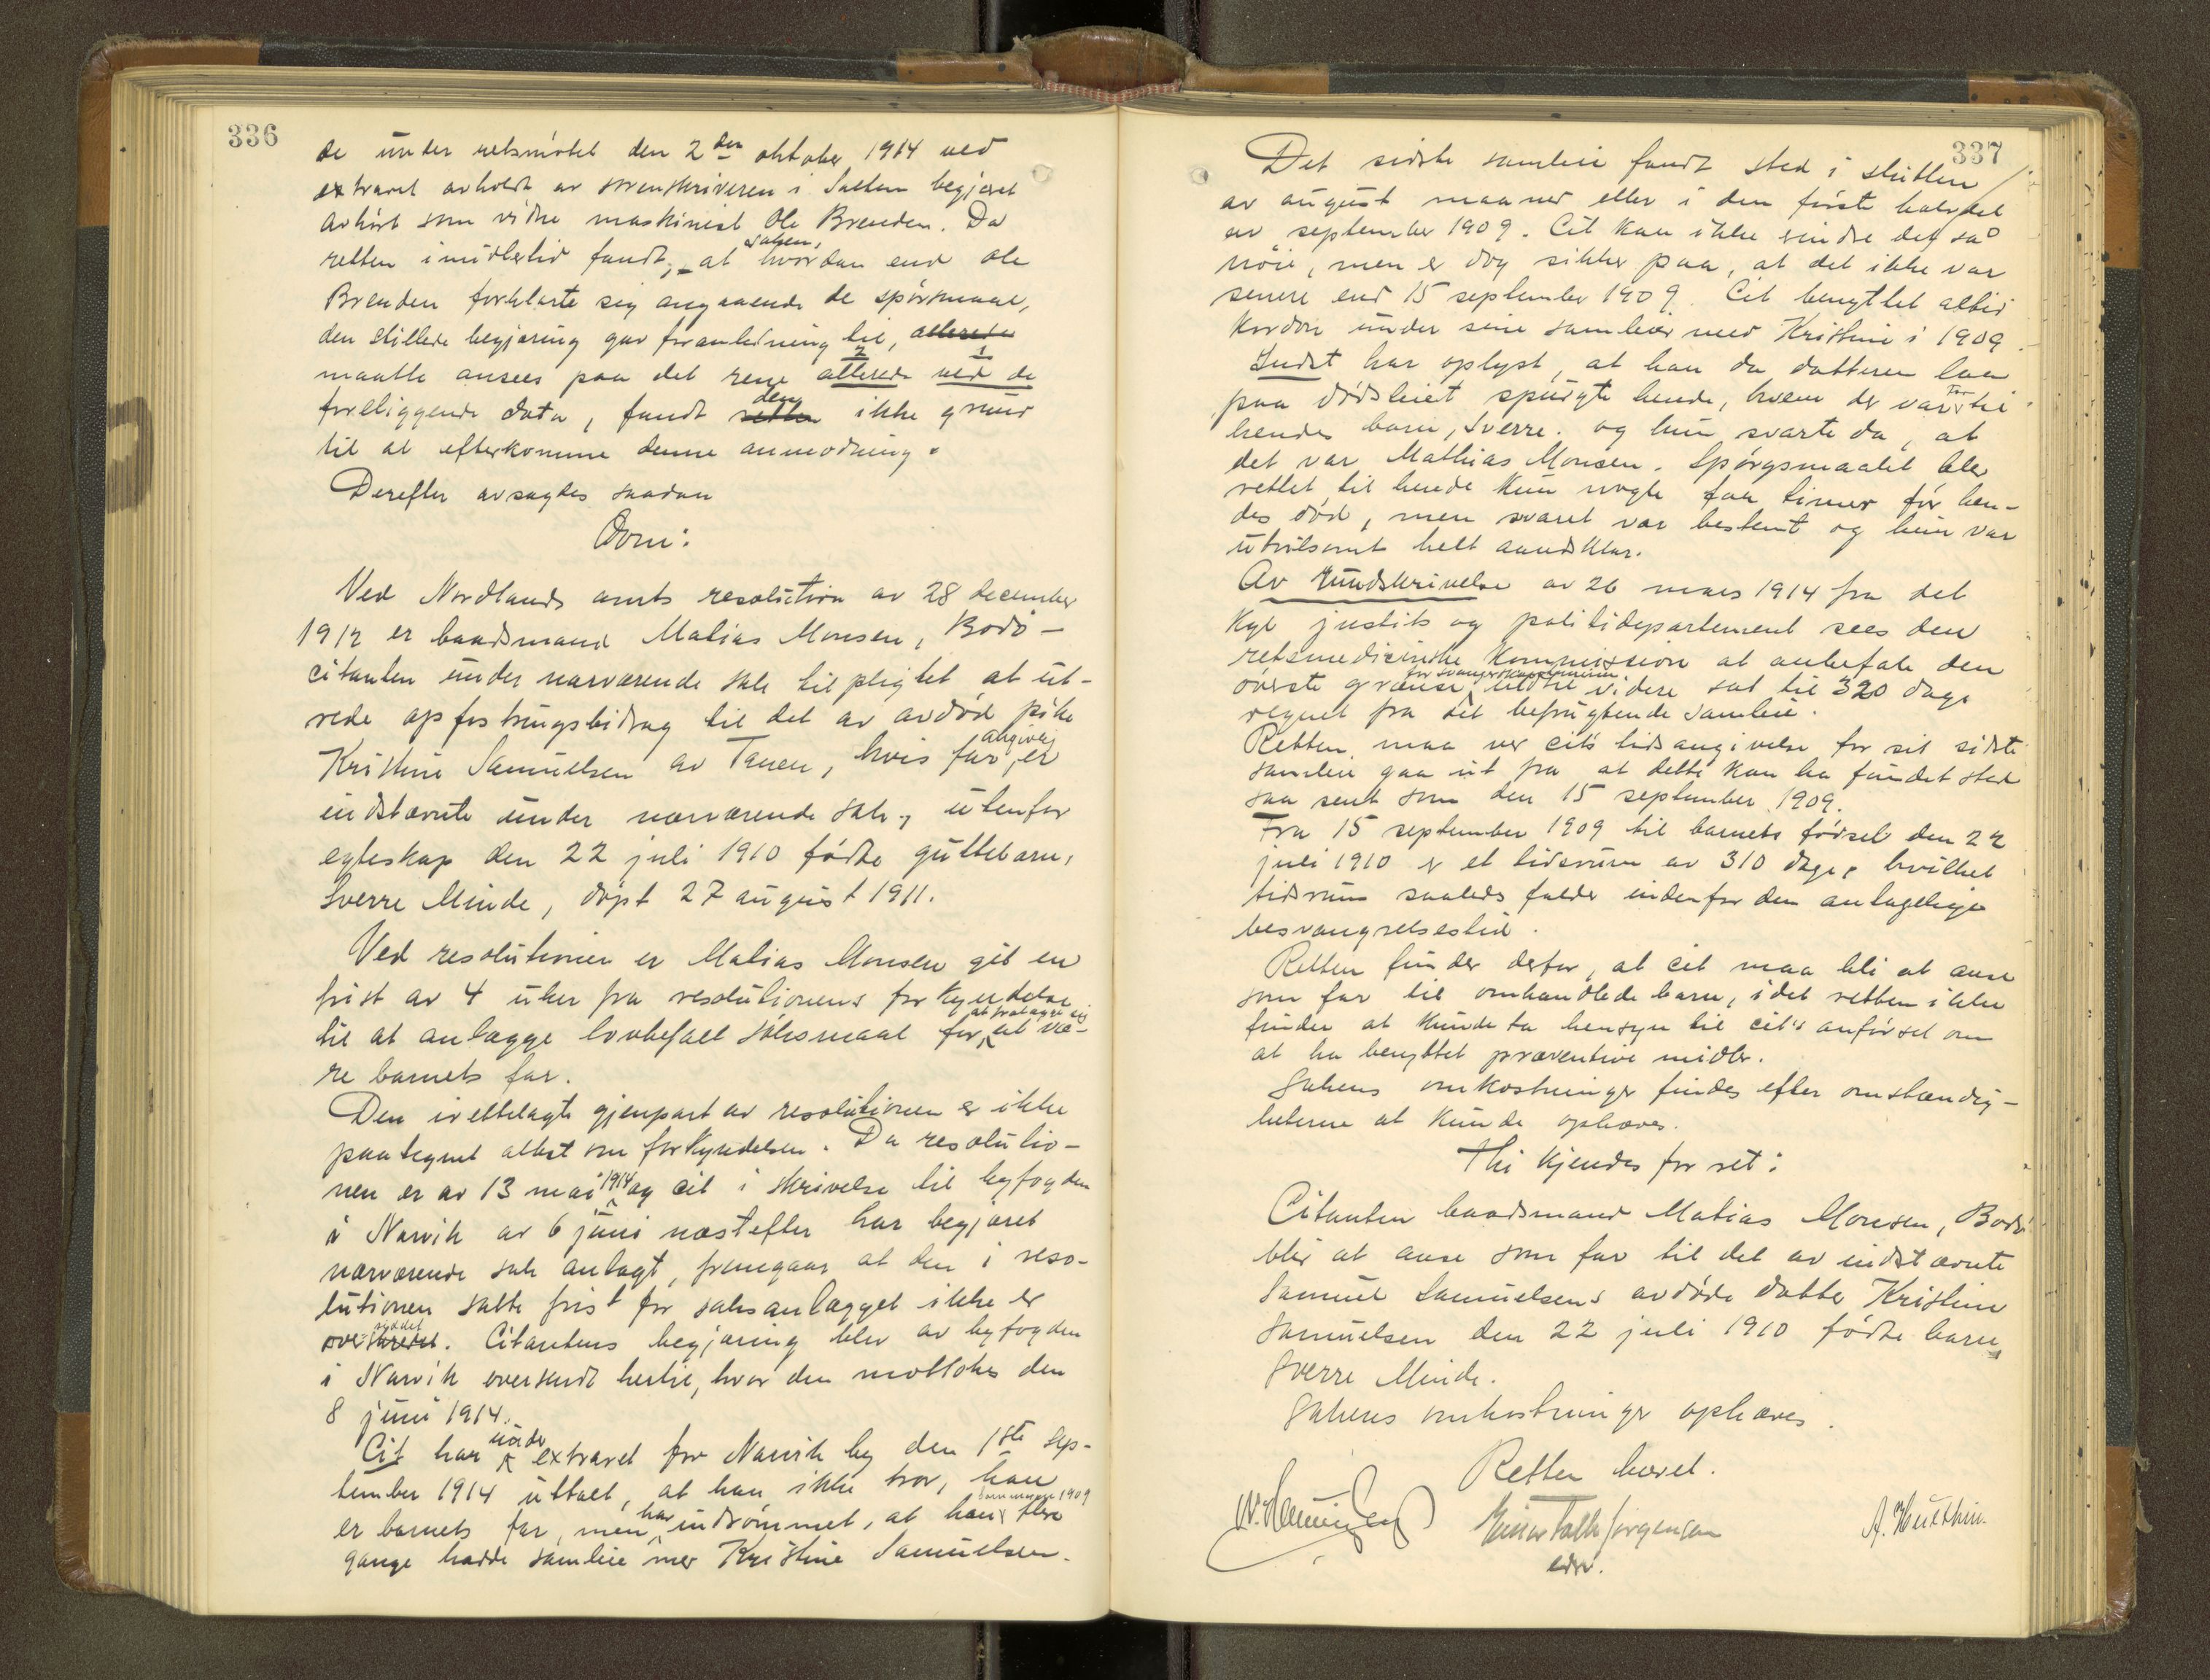 336
de under retsmøtet den 2den oktober 1914 ved
extraret avholdt av sorenskriveren i Salten begjæret
avhørt som vidne maskinist Ole Brenden. Da
retten imidlertid fandt, at saken, hvordan end Ole
Brenden forklarte sig angaaende de spørsmaal,
den stillede begjæring gav foranledning til, allerede
maatte ansees paa det rene allerede ved de
foreliggende data, fandt retten den ikke grund
til at efterkomme denne anmodning.
Derefter avsagdes saadan
Dom:
Ved Nordlands amts resolution av 28 december
1912 er baadsmand Matias Monsen, Bodø –
citanten under nærværende sak tilpligtet at ut-
rede opfostringsbidrag til det av avdød pike
Kristine Samuelsen av Tanen, hvis far angivelig er
indstævnte under nærværende sak, utenfor
egteskap den 22 juli 1910 fødte guttebarn,
Sverre Minde, døpt 27 august 1911.
Ved resolutionen er Matias Monsen git en
frist av 4 uker fra resolutionens forkyndelse
til at anlægge lovbefalt søksmaal for at fralægge sig at væ-
re barnets far.
Den irettelagte gjenpart av resolutionen er ikke
paategnet attest om forkyndelsen. Da resolutio-
nen er av 13 mai 1914 og cit i skrivelse til byfogden
i Narvik av 6 juni næstefter har begjæret
nærværende sak anlagt, fremgaar at den i reso-
lutionen satte frist for saksanlægget ikke er
oversiddet. Citantens begjæring blev av byfogden
i Narvik oversendt hertil, hvor den mottokes den
8 juni 1914.
Cit har under extraret for Narvik by den 1ste sep-
tember 1914 uttalt, at han ikke tror, han
er barnets far, men har indrømmet, at han sommeren 1909 flere
gange hadde samleie med Kristine Samuelsen.
337
Det sidste samleie fandt sted i slutten
av august maaned eller i den første halvdel
av september 1909. Cit kan ikke erindre det saa
nøie, men er dog sikker paa, at det ikke var
senere end 15 september 1909. Cit benyttet altid
kondon under sine samleier med Kristine i 1909.
Indst har oplyst, at han da datteren laa
paa dødsleiet spurgte hende, hvem der var far til
hendes barn, Sverre. og hun svarte da, at
det var Mathias Monsen. Spørgsmaalet blev
rettet til hende kun nogle faa timer før hen-
des død, men svaret var bestemt og hun var
utvilsomt helt aandsklar.
Av rundskrivelse av 26 mars 1914 fra det
kgl justits og politidepartement sees den
retsmedicinske kommission at anbefale den
øverste grænse for svangerskapsperioden indtil videre sat til 320 dage
regnet fra det befrugtende samleie.
Retten maa ved cits tidsangivelse for sit sidste
samleie gaa ut fra at dette kan ha fundet sted
saa sent som den 15 september 1909.
Fra 15 september 1909 til barnets fødsel den 22
juli 1910 er et tidsrum av 310 dage, hvilket
tidsrum saaledes falder indenfor den antagelige
besvangrelsestid.
Retten finder derfor, at cit maa bli at anse
som far til omhandlede barn, idet retten ikke
finder at kunde ta hensyn til cit's anførsel om
at ha benyttet præventive midler.
Sakens omkostninger findes efter omstændig-
heterne at kunde ophæves.
Thi kjendes for ret:
Citanten baadsmand Matias Monsen, Bodø
blir at anse som far til det av indstævnte
Samuel Samuelsens avdøde datter Kristine
Samuelsen den 22 juli 1910 fødte barn,
Sverre Minde.
Sakens omkostninger ophæves.
Retten hævet.
Einar Falk Jørgensen
edsv.